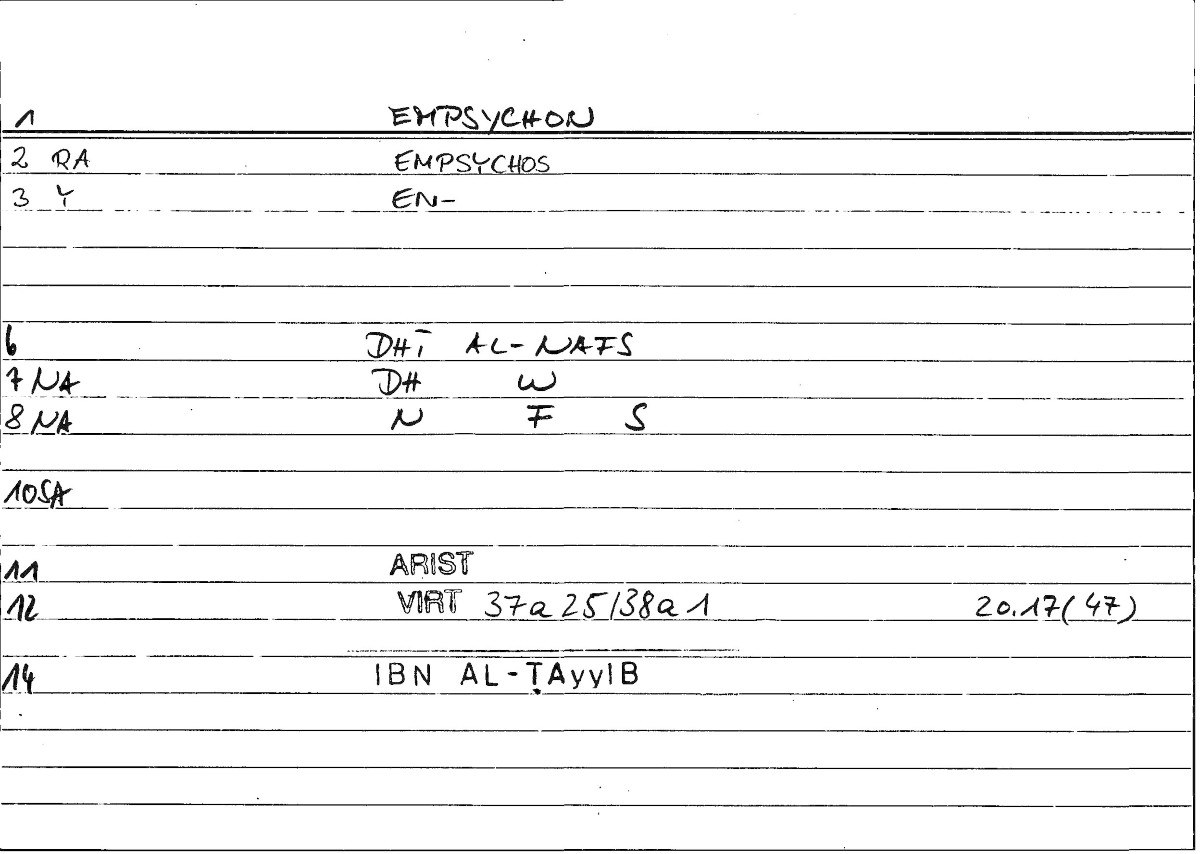 1 EMPSYCHON
2 RA EMPSYCHOS
3 Y EN-
6 DHĪ AL-NAFS
7 NA DH W
8 NA N F S
10 SA
11 ARIST
12 VIRT 37a25/38a1 20.17(47)
14 IBN AL-ṬAyyIB